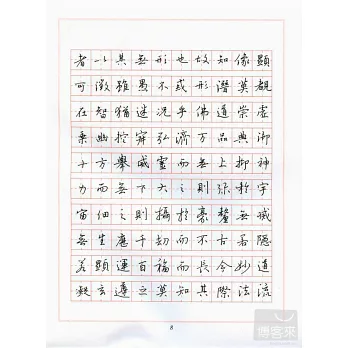 者以其無形也故知像顯
可徵雖愚不惑形潛莫覩
在智猶迷況乎佛道崇虛
乘幽控寂弘濟万品典御
十方舉威靈而無上抑神
力而無下大之則彌於宇
宙細之則攝於豪釐無滅
無生歷千劫而不古若隱
若顯運百福而長今妙道
凝玄遵之莫知其際法流
8
博客來